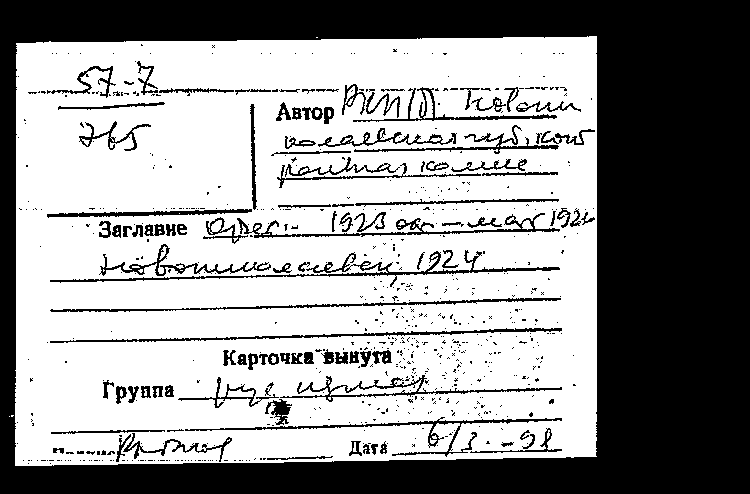 57-7
765
Автор РКП(б). Новони
колаевская губ. конт
рольная комис
Заглавие 1923 окт - март 1924
Новониколаевск, 1924
Карточка вынута
Группа
Дата 6/3. -98